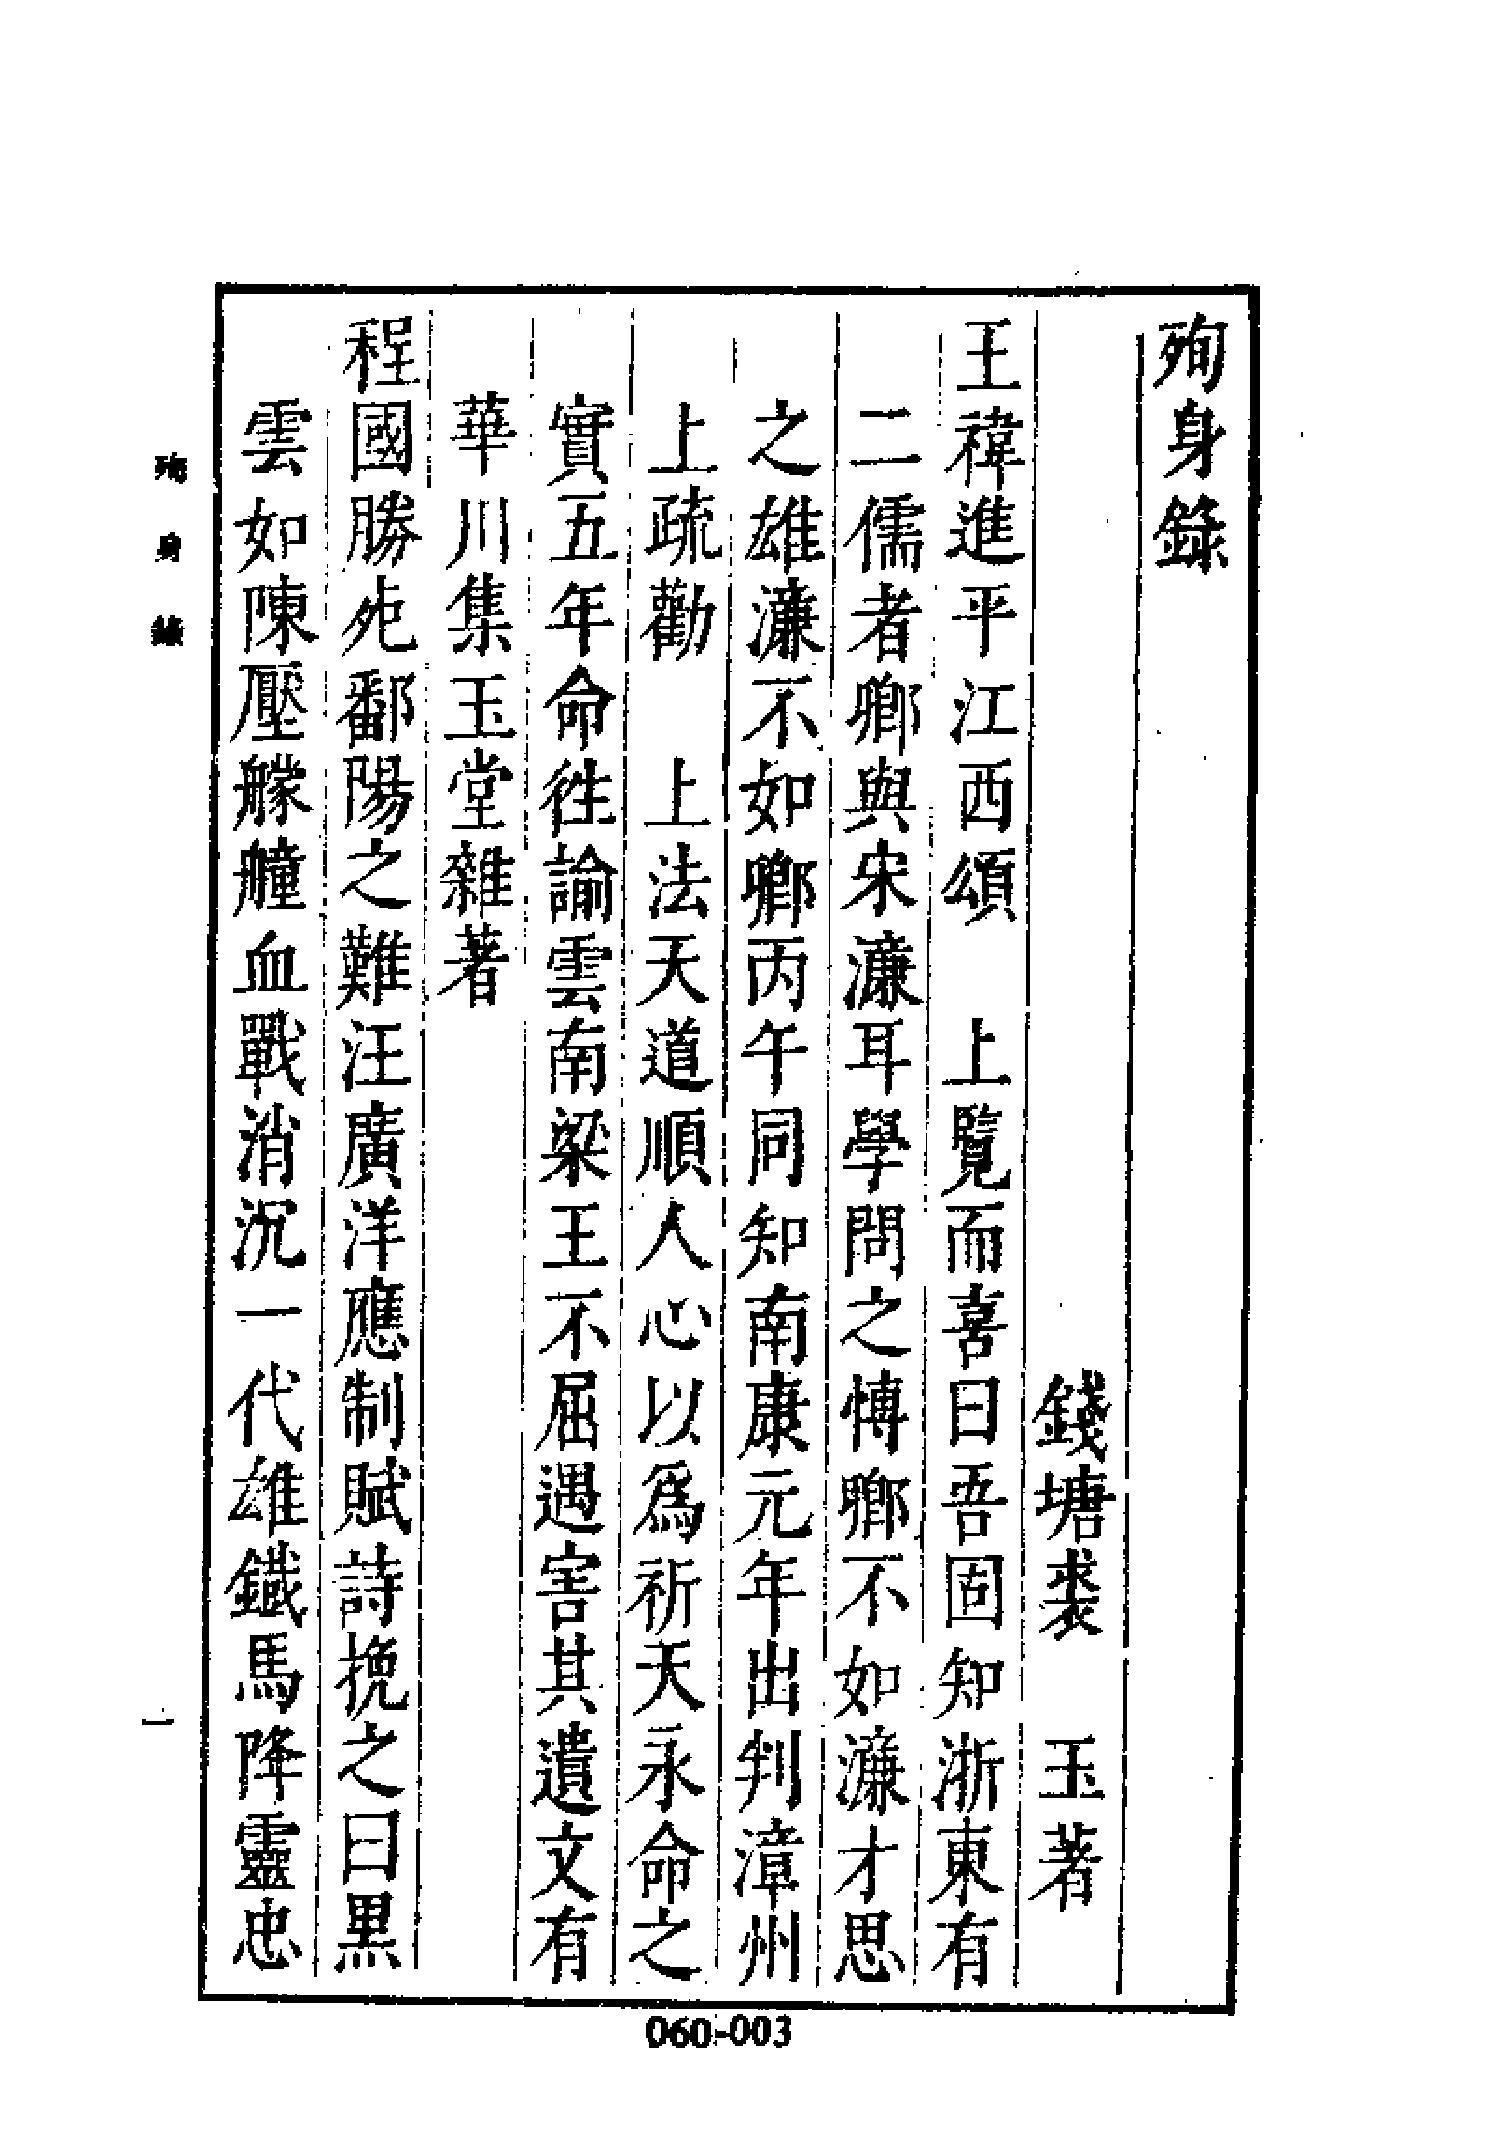 殉身錄
錢塘裘　玉著
王褘進平江西頌　上覽而喜曰吾固知浙東有
二儒者卿與宋濂耳學問之愽卿不如濂才思
之雄濂不如卿丙午同知南康元年出判漳州
上疏勸　上法天道順人心以爲祈天永命之
實五年命徃諭雲南梁王不屈遇害其遺文有
華川集玉堂雜著
程國勝死鄱陽之難汪廣洋應制賦詩挽之曰黒
雲如陳壓艨艟血戰消沉一代雄鐵馬降靈忠
殉身錄
一
060-003